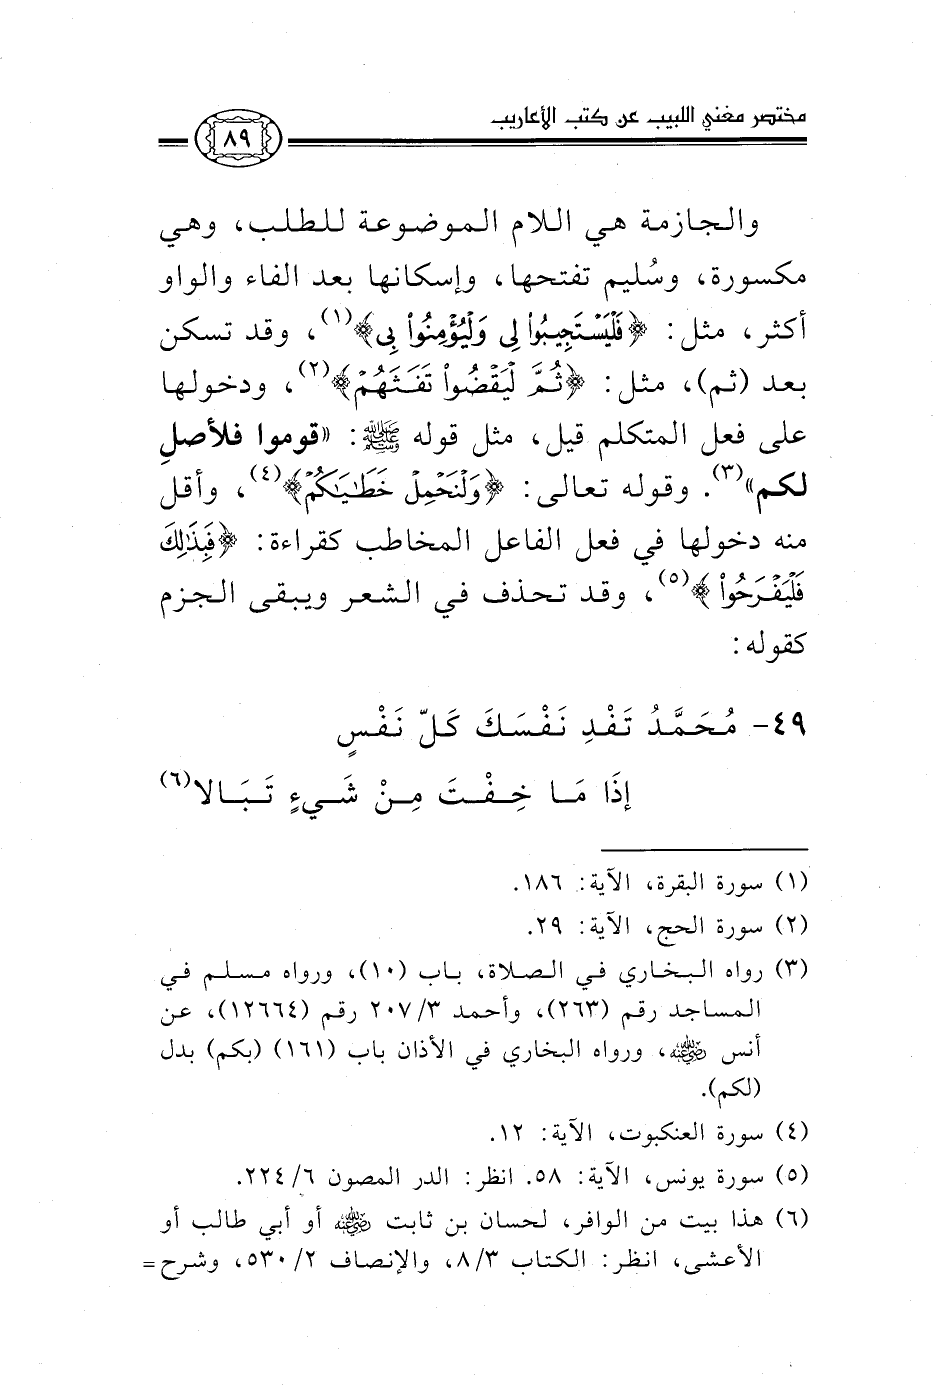 مختصر مغني اللبيب عن كتب الأعاريب
٨٩
والجازمة هي اللام الموضوعة للطلب، وهي
مكسورة، وسُليم تفتحها، وإسكانها بعد الفاء والواو
أكثر، مثل: ﴿فَلْيَسْتَجِيبُوا۟ لِى وَلْيُؤْمِنُوا۟ بِى﴾(١)، وقد تسكن
بعد (ثم)، مثل: ﴿ثُمَّ لْيَقْضُوا۟ تَفَثَهُمْ﴾(٢)، ودخولها
على فعل المتكلم قيل، مثل قوله ﷺ: «قوموا فلأصلِ
لكم»(٣). وقوله تعالى: ﴿وَلْنَحْمِلْ خَطَـٰيَـٰكُمْ﴾(٤)، وأقل
منه دخولها في فعل الفاعل المخاطب كقراءة: ﴿فَبِذَٰلِكَ
فَلْيَفْرَحُوا۟﴾(٥)، وقد تحذف في الشعر ويبقى الجزم
كقوله:
٤٩- مُحَمَّدُ تَفْدِ نَفْسَكَ كَلّ نَفْسٍ
إذَا مَا خِفْتَ مِنْ شَيءٍ تَبَالا(٦)
(١) سورة البقرة، الآية: ١٨٦.
(٢) سورة الحج، الآية: ٢٩.
(٣) رواه البخاري في الصلاة، باب (١٠)، ورواه مسلم في
المساجد رقم (٢٦٣)، وأحمد ٢٠٧/٣ رقم (١٢٦٦٤)، عن
أنس رضي الله عنه، ورواه البخاري في الأذان باب (١٦١) (بكم) بدل
(لكم).
(٤) سورة العنكبوت، الآية: ١٢.
(٥) سورة يونس، الآية: ٥٨. انظر: الدر المصون ٢٢٤/٦.
(٦) هذا بيت من الوافر، لحسان بن ثابت رضي الله عنه أو أبي طالب أو
الأعشى، انظر: الكتاب ٨/٣، والإنصاف ٥٣٠/٢، وشرح=